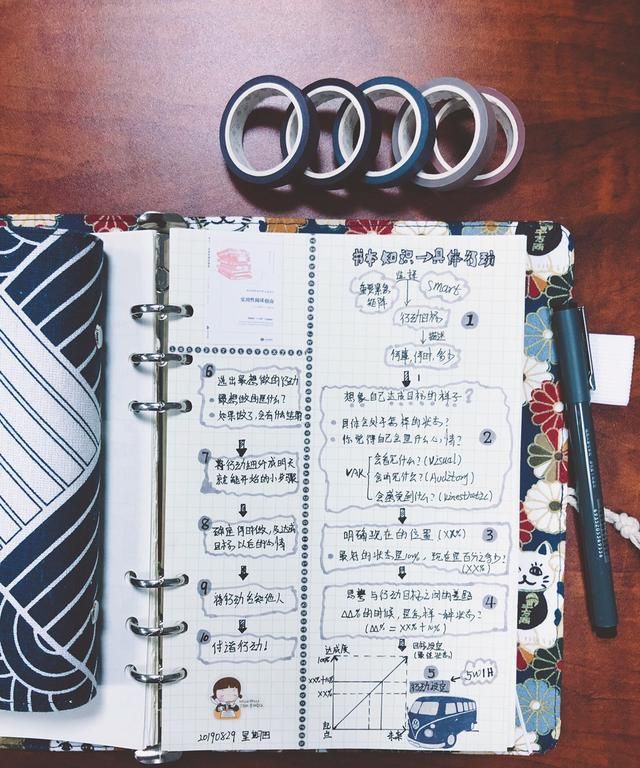 书本知识→具体行动
选择
重要紧急
矩阵
Smart
行动目标
1
描述
何事,何时,多少
想象自己达成目标的样子?
2
身体会处于怎样的状态?
你觉得自己会是什么心情?
VAK
会看见什么?(Visual)
会听见什么?(Auditory)
会感受到什么?(Kinesthetic)
明确现在的位置 (XX%)
3
最好的状态是100%,现在是百分之多少?
(XX%)
思考与行动目标之间的差距
4
△△%的时候,是怎样一种状态?
(△△% = XX% + 10%)
达成度
100%
XX%+10%
XX%
起
点
未来
目标设定
(最佳状态)
5
5W1H
行动设定
实用性阅读指南
6
选出最想做的行动
最想做的是什么?
如果做了,会有什么结果
7
将行动细分成明天
就能开始的小步骤
8
确定何时做,及达成
目标以后的心情
9
将行动告知他人
10
付诸行动!
20190829 星期四